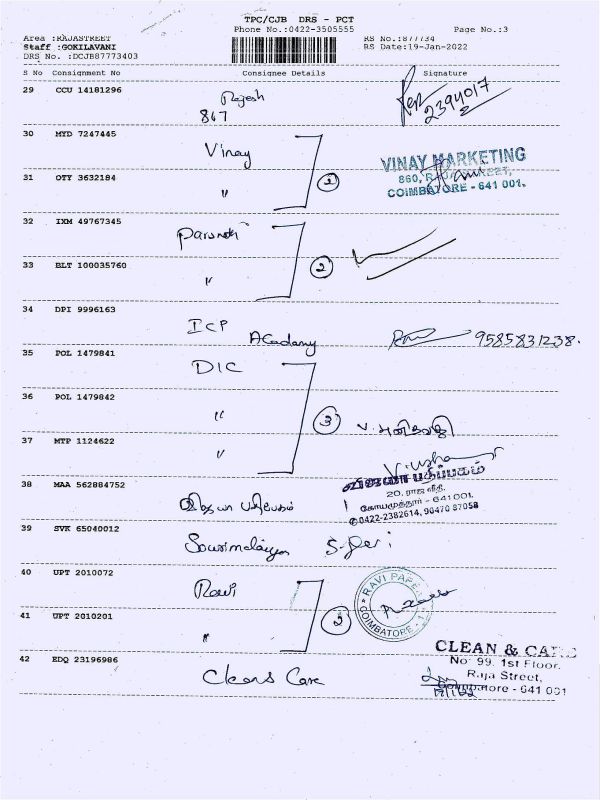 TPC/CJB DRS - PCT
Phone No.:0422-3505555
Page No.:3
Area :RAJASTREET
RS No.:877734
Staff :GOKILAVANI
RS Date:19-Jan-2022
DRS No. :DCJB87773403
S No Consignment No Consignee Details Signature
29 CCU 14181296 Rajesh
867
2394017
30 MYD 7247445 Vinay
VINAY MARKETING
860, R STREET,
COIMBATORE - 641 001.
31 OTY 3632184 "
2
32 IXM 49767345
33 BLT 100035760 "
2
34 DPI 9996163 ICP Academy 9585831238.
35 POL 1479841 DIC
36 POL 1479842 "
3
37 MTP 1124622 "
V. Usha
38 MAA 562884752
விஜயா பதிப்பகம்
20, ராஜ வீதி,
கோயமுத்தூர் - 641 001.
0422-2382614, 90470 87058
39 SVK 65040012
40 UPT 2010072 Ravi
RAVI PAPER
COIMBATORE - 1
41 UPT 2010201 "
2
42 EDQ 23196986 Cleans Care
CLEAN & CARE
No 99. 1st Floor.
Raja Street,
Coimbatore - 641 001